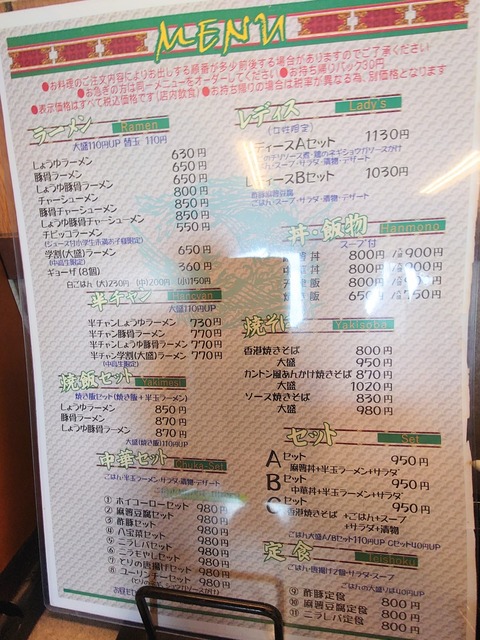 MENU
●お料理のご注文内容によりお出しする順番が多少前後する場合がありますのでご了承ください
●お急ぎの方は同一メニューをオーダーしてください ●お持ち帰りパック30円
●表示価格はすべて税込価格です(店内飲食) ●お持ち帰りの場合は税率が異なる為、別価格となります
ラーメン Ramen
大盛110円UP 替玉 110円
しょうゆラーメン 630円
豚骨ラーメン 650円
しょうゆ豚骨ラーメン 650円
チャーシューメン 800円
豚骨チャーシューメン 850円
しょうゆ豚骨チャーシューメン 850円
チビッコラーメン 550円
(ジュース付小学生未満お子様限定)
学割(大盛)ラーメン 650円
(中高生限定)
ギョーザ(8個) 360円
白ごはん (大)230円 (中)200円 (小)150円
半チャン Hancyan
大盛110円UP
半チャンしょうゆラーメン 750円
半チャン豚骨ラーメン 770円
半チャンしょうゆ豚骨ラーメン 770円
半チャン学割(大盛)ラーメン 770円
(中高生限定)
焼飯セット Yakimesi
焼き飯セット(焼き飯+半玉ラーメン)
しょうゆラーメン 850円
豚骨ラーメン 870円
しょうゆ豚骨ラーメン 870円
大盛(焼き飯)110円UP
中華セット Chuka-Set
ごはん・半玉ラーメン・サラダ・漬物・デザート
① ホイコーローセット 980円
② 麻婆豆腐セット 980円
③ 酢豚セット 980円
④ 八宝菜セット 980円
⑤ ニラレバセット 980円
⑥ ニラモヤシセット 980円
⑦ とりの唐揚げセット 980円
⑧ ユーリンチーセット 980円
レディス Lady's
(女性限定)
ディースAセット 1130円
ごはん・スープ・サラダ・漬物・デザート
ディースBセット 1030円
酢豚麻婆豆腐
ごはん・スープ・サラダ・漬物・デザート
丼・飯物 Hanmono
スープ付
丼 800円
丼 800円
飯 800円
飯 650円
焼そば Yakisoba
香港焼きそば 800円
大盛 950円
カントン風あんかけ焼きそば 870円
大盛 1020円
ソース焼きそば 830円
大盛 980円
セット Set
Aセット 950円
麻婆丼+半玉ラーメン+サラダ
Bセット 950円
中華丼+半玉ラーメン+サラダ
Cセット 950円
香港焼きそば +ごはん+スープ
+サラダ+漬物
ごはん大盛A/Bセット110円UP Cセット40円UP
定食 Teishoku
ごはん・唐揚げ2個・サラダ・スープ
ごはんの大盛りは40円UP
⑨ 酢豚定食 800円
⑩ 麻婆豆腐定食 800円
⑪ ニラレバ定食 800円